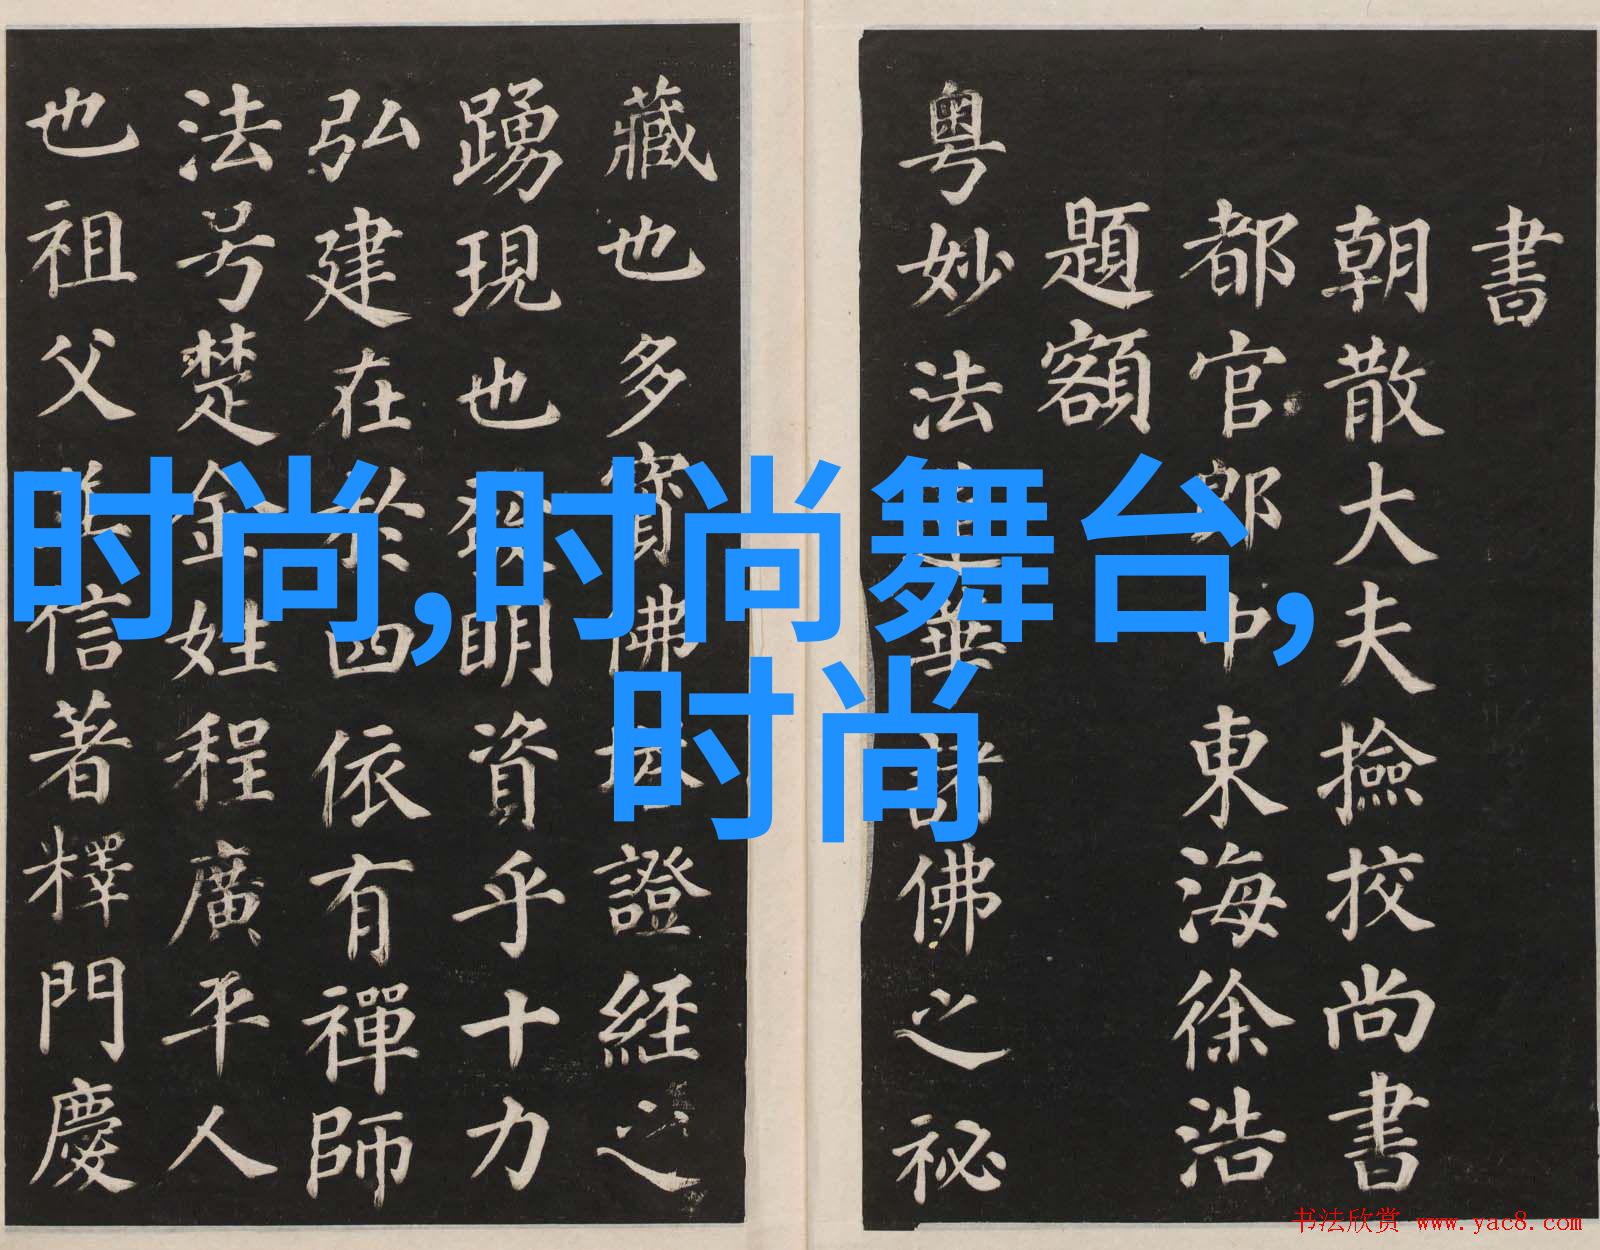 时尚,时尚舞台,
时尚
書
朝散大夫撿挍尚書
都官郎中東海徐浩
題額
粵妙法華諸佛之祕
藏也多寶佛塔證經之
踴現也發明資乎十力
弘建在於四依有禪師
法号楚金姓程廣平人
也祖父信著釋門慶
书法欣赏 www.yac8.com